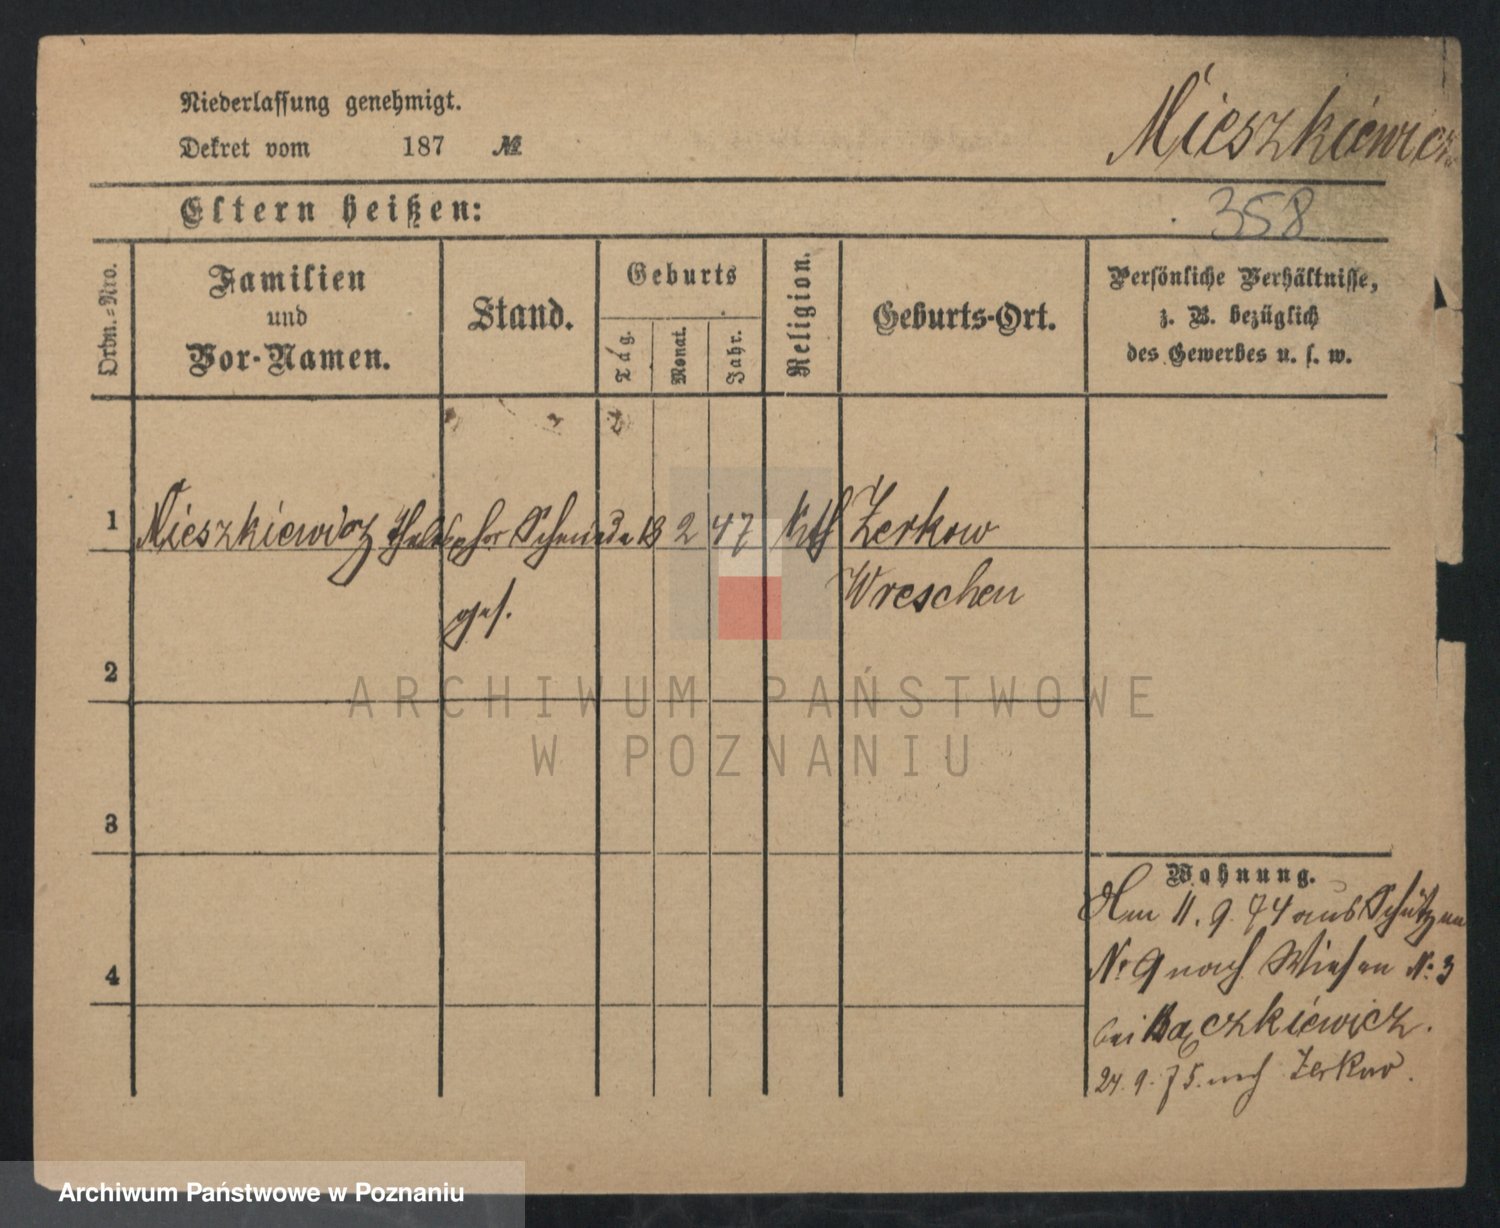 Niederlassung genehmigt.
Mieszkiewicz
Dekret vom 187 №
Eltern heißen:
358
Ordn.-Nro.
Familien
und
Vor-Namen.
Stand.
Geburts
Tag.
Monat.
Jahr.
Religion.
Geburts-Ort.
Persönliche Verhältnisse,
z. B. bezüglich
des Gewerbes u. s. w.
1 Mieszkiewicz Schmiede 18 2 47 Kth Zerkow
ges. Wreschen
2
ARCHIWUM PAŃSTWOWE
W POZNANIU
3
Wohnung.
Am 11. 9. 74 aus Schützen
Nr 9 nach Wiesen N: 3
bei Bączkiewicz.
24. 9. 75. nach Zerkow.
4
Archiwum Państwowe w Poznaniu